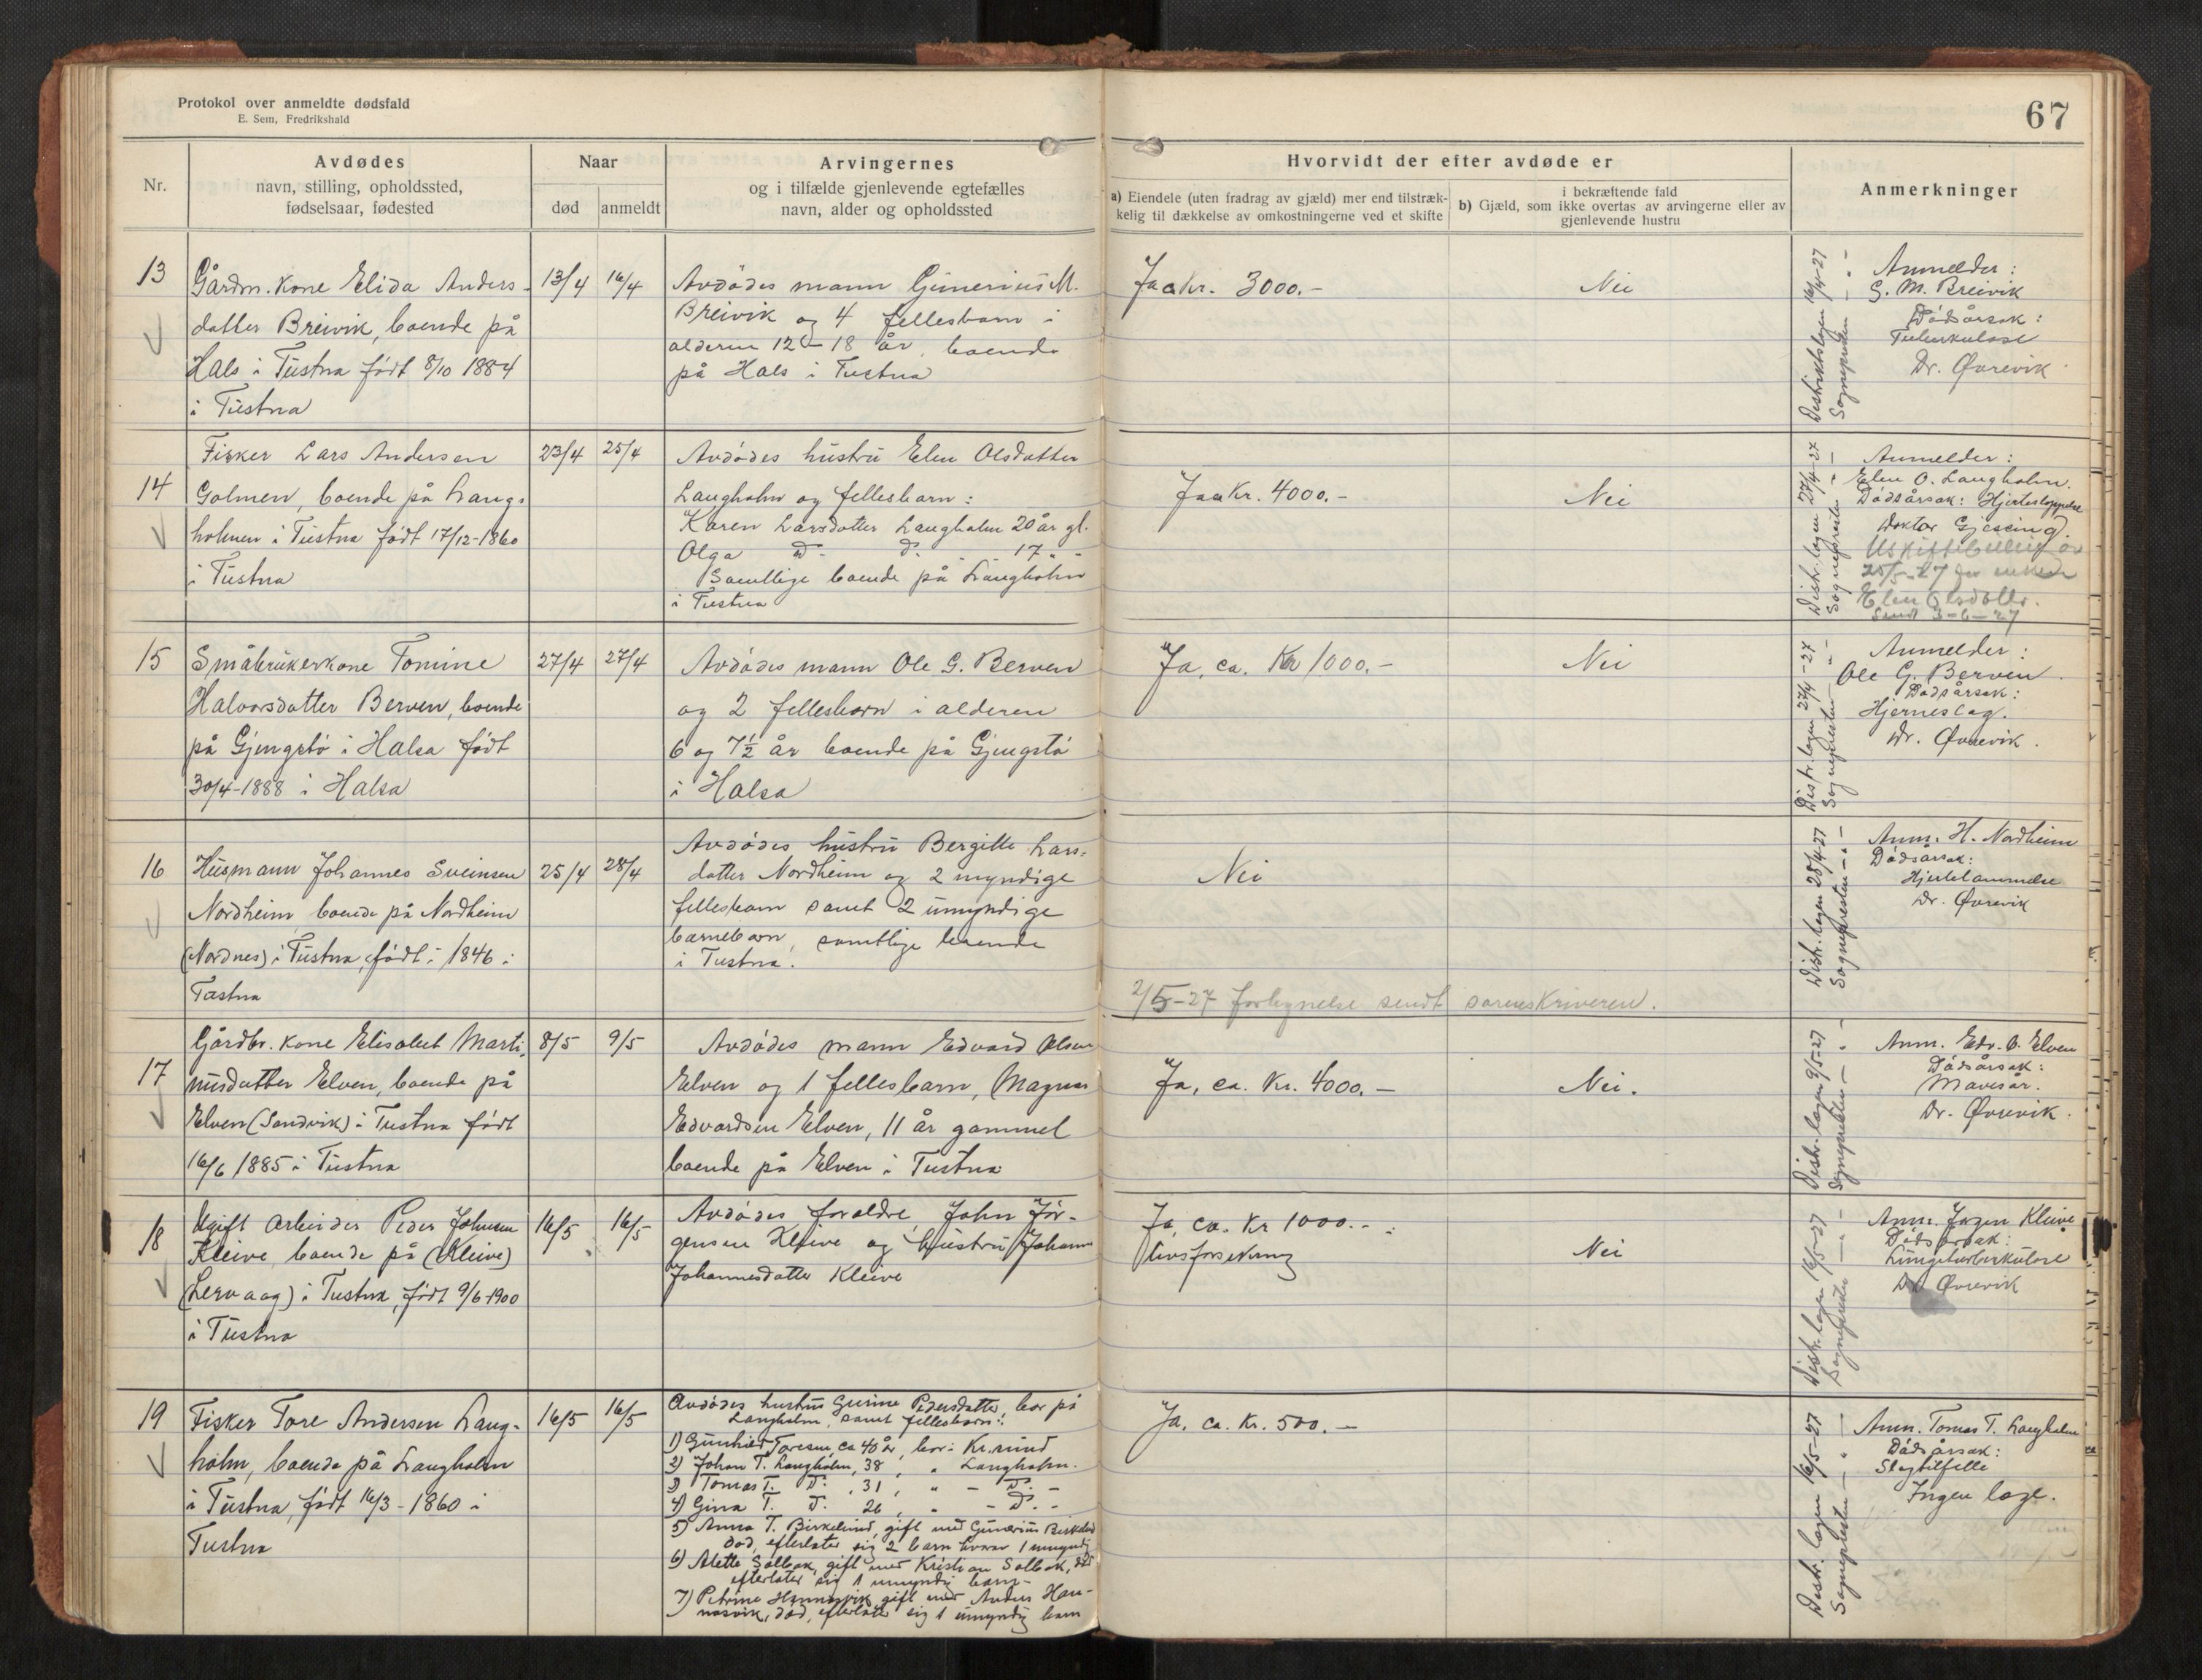 Protokol over anmeldte dødsfald
E. Sem, Fredrikshald
67
Nr.
Avdødes
navn, stilling, opholdssted,
fødselsaar, fødested
Naar
død
anmeldt
Arvingernes
og i tilfælde gjenlevende egtefælles
navn, alder og opholdssted
Hvorvidt der efter avdøde er
a) Eiendele (uten fradrag av gjæld) mer end tilstræk-
kelig til dækkelse av omkostningerne ved et skifte
i bekræftende fald
b) Gjæld, som ikke overtas av arvingerne eller av
gjenlevende hustru
Anmerkninger
13
Gårdm. kone Elida Anders-
datter Breivik, boende på
Hals i Tustna født 8/10 1884
i Tustna
13/4
16/4
Avdødes mann Gunerius M.
Breivik og 4 fellesbarn i
alderen 12 – 18 år, boende
på Hals i Tustna
Ja ca kr. 3000.-
Nei
Distriktslægen 16/4-27
Sognepresten — " —
Anmelder:
G. M. Breivik
Dødsårsak:
Tuberkulose
Dr. Øvrevik
14
Fisker Lars Andersen
Golmen, boende på Lang-
holmen i Tustna født 17/12-1860
i Tustna
23/4
25/4
Avdødes hustru Elen Olsdatter
Langholm og fellesbarn:
Karen Larsdatter Langholm 20 år gl.
Olga D. D. - 17 " -
Samtlige boende på Langholm
i Tustna
Ja ca Kr. 4000.-
Nei
Distr. lægen 27/4-27
Sognepresten — " —
Anmelder:
Elen O. Langholm.
Dødsårsak: Hjerteslappelse
Doktor Gjessing.
Uskiftebevilling av
25/5-27 for enken
Elen Olsdatter.
Sendt 3-6-27
15
Småbrukerkone Tomine
Halvorsdatter Berven, boende
på Gjengstø i Halsa født
30/4-1888 i Halsa
27/4
27/4
Avdødes mann Ole G. Berven
og 2 fellesbarn i alderen
6 og 7½ år boende på Gjengstø
i Halsa
Ja, ca. Kr 1000.-
Nei
Distr. lægen 27/4-27
Sognepresten — " —
Anmelder:
Ole G. Berven.
Dødsårsak:
Hjerneslag.
Dr. Øvrevik.
16
Husmann Johannes Sveinsen
Nordheim boende på Nordheim
(Nordnes) i Tustna, født i 1846 i
Tustna
25/4
28/4
Avdødes hustru Bergitte Lars-
datter Nordheim og 2 myndige
fellesbarn samt 2 umyndige
barnebarn, samtlige boende
i Tustna.
Nei
2/5-27 forlegnelse sendt sorenskriveren.
Distr. lægen 28/4-27
Sognepresten — " —
Anm. H. Nordheim
Dødsårsak:
Hjertelammelse
Dr. Øvrevik
17
Gårdbr. kone Elisabet Marti-
nusdatter Elven, boende på
Elven (Sandvik) i Tustna født
16/6 1885 i Tustna
8/5
9/5
Avdødes mann Edvard Olsen
Elven og 1 fellesbarn, Magnus
Edvardsen Elven, 11 år gammel
boende på Elven i Tustna
Ja, ca. Kr. 4000.-
Nei.
Distr. lægen 9/5-27
Sognepresten — " —
Anm. Edv. O. Elven
Dødsårsak:
Mavesår.
Dr. Øvrevik.
18
Ugift arbeider Peder Johnsen
Kleive, boende på (Kleive)
(Lervaag) i Tustna, født 9/6-1900
i Tustna
16/5
16/5
Avdødes foreldre, John Jør-
gensen Kleive og hustru Johanne
Johannesdatter Kleive
Ja, ca. Kr 1000.-
livsforsikring
Nei
Distr. lægen 16/5-27
Sognepresten — " —
Anm. Jørgen Kleive
Dødsårsak:
Lungetuberkulose
Dr. Øvrevik
19
Fisker Tore Andersen Lang-
holm, boende på Langholm
i Tustna, født 16/3-1860 i
Tustna
16/5
16/5
Avdødes hustru Gurine Pedersdatter, bor på
Langholm, samt fellesbarn:
1) Gunhild Toresen, ca 40 år, bor i Kr.sund
2) Johan T. Langholm, 38, " Langholm.
3) Tomas T. D. , 31, " - D. -
4) Gina T. D. 26, " - D. -
5) Anna T. Birkelund, gift med Gunerius Birkelund
død, efterlater sig 2 barn hvorav 1 umyndig
6) Alette Solbak, gift med Kristian Solbak, død
efterlater sig 1 umyndig barn-
7) Petrine Hannasvik gift med Anders Han-
nasvik, død, efterlater sig 1 umyndig barn
Ja, ca. Kr. 500.-
Distr. lægen 16/5-27
Sognepresten — " —
Anm. Tomas T. Langholm
Dødsårsak:
Slagtilfelle
Ingen læge.